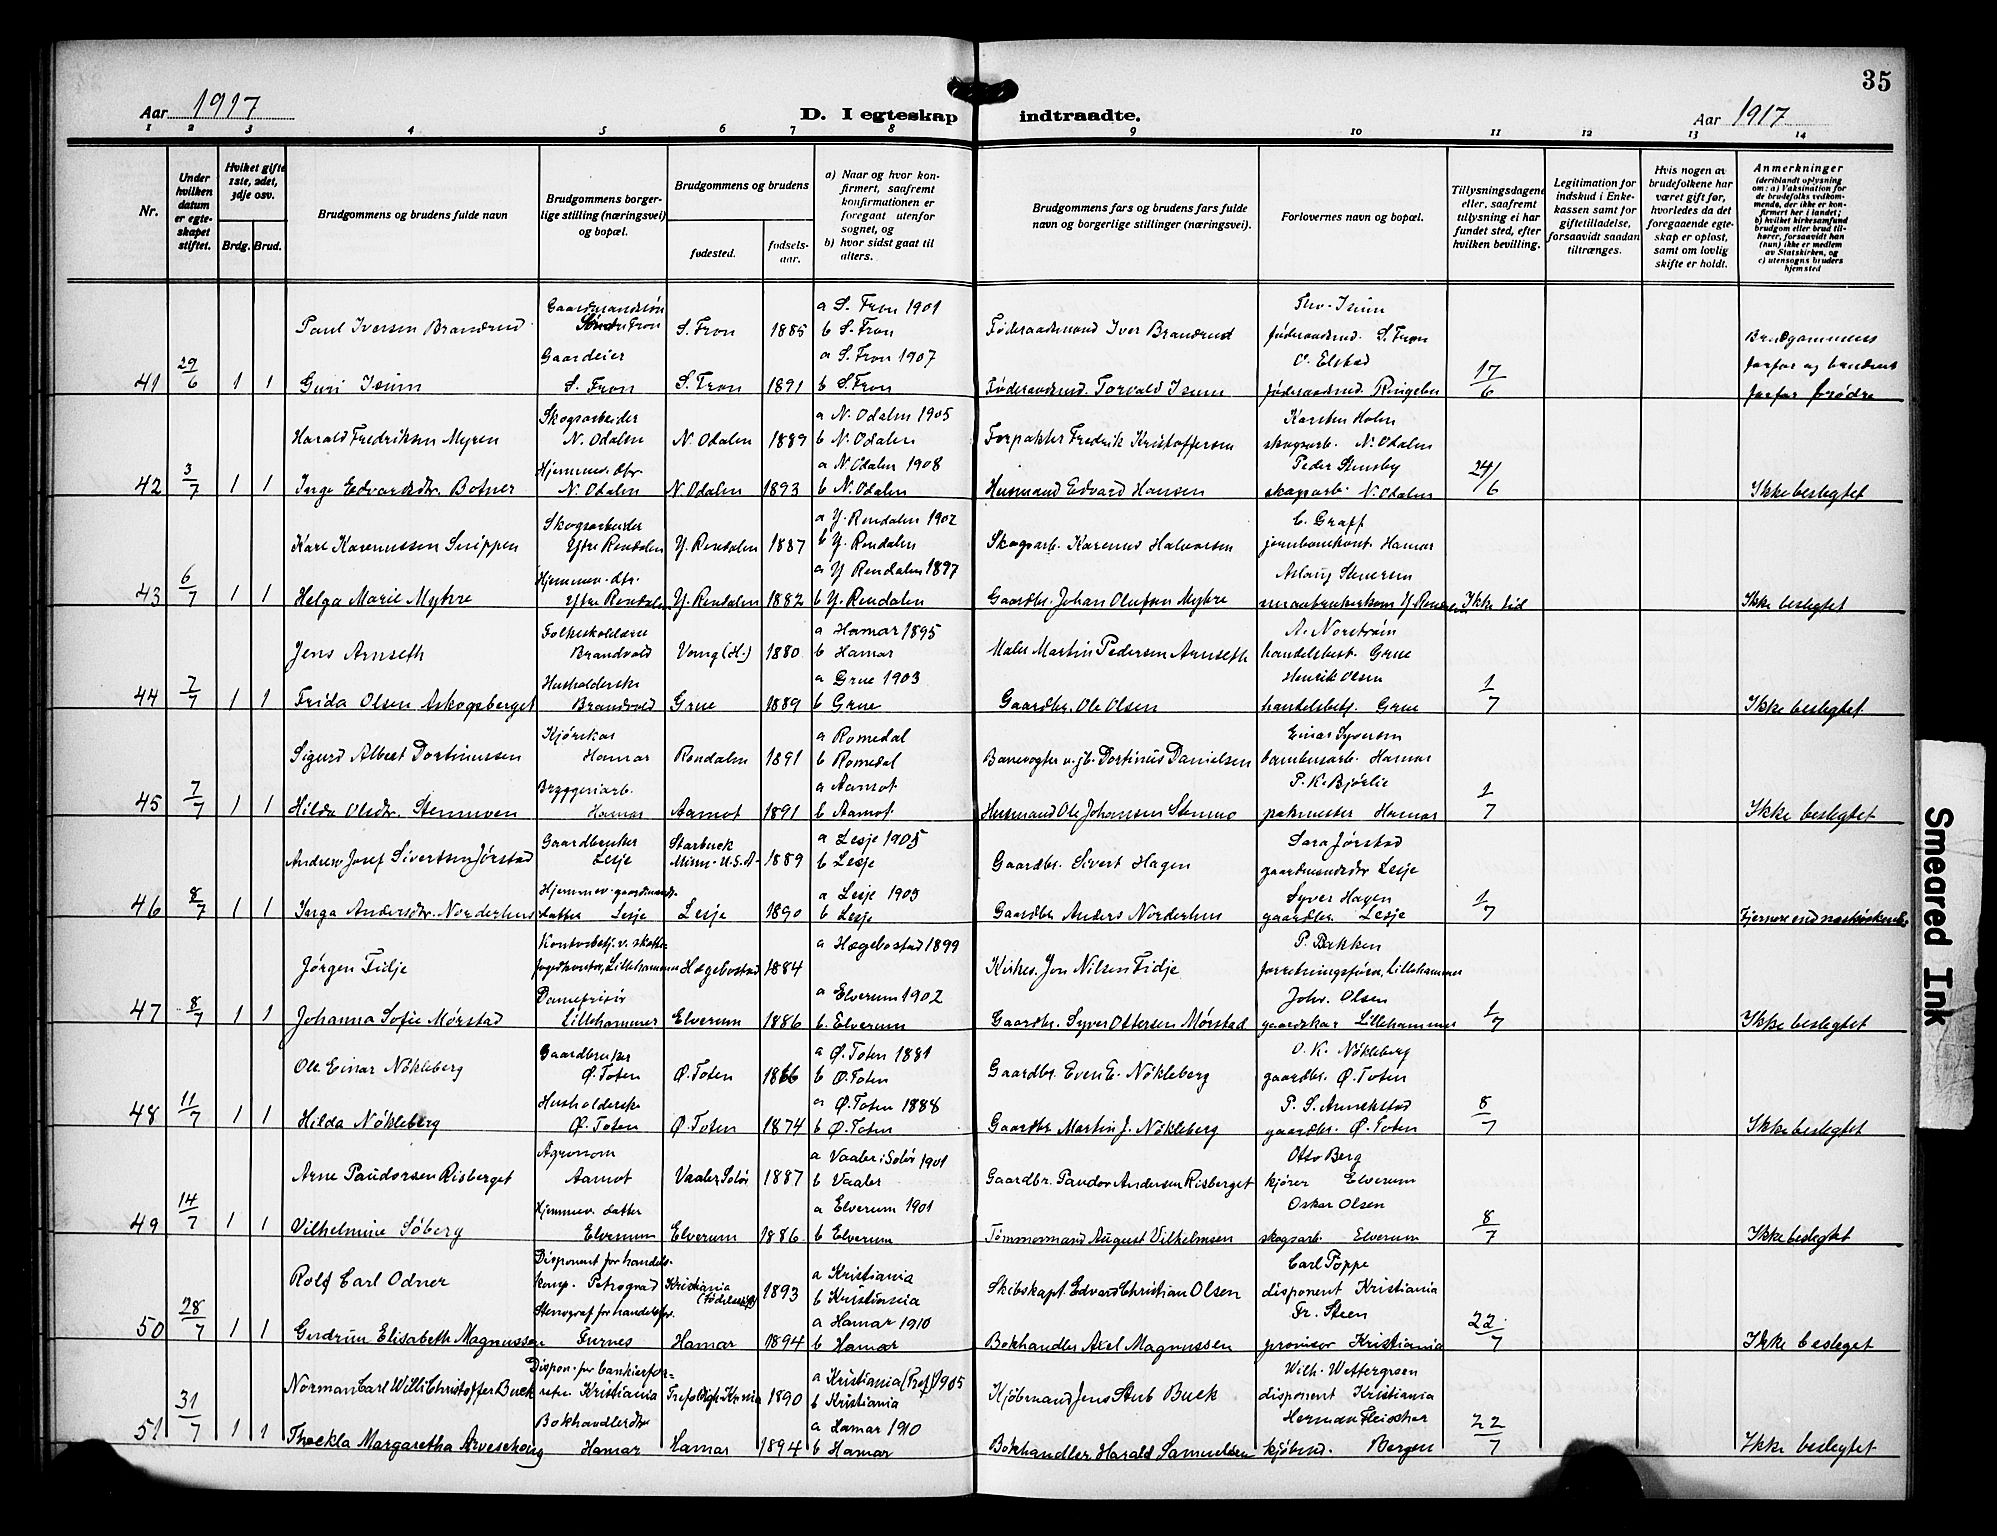 35
Aar 1917
D. I egteskap indtraadte.
Aar 1917
1 2 3 4 5 6 7 8 9 10 11 12 13 14
Nr.
Under hvilken datum er egteskapet stiftet.
Hvilket gifte 1ste, 2det, 3dje osv.
Brdg. Brud.
Brudgommens og brudens fulde navn
Brudgommens borgerlige stilling (næringsvei) og bopæl.
Brudgommens og brudens
fødested.
fødselsaar.
a) Naar og hvor konfirmert, saafremt konfirmationen er foregaat utenfor sognet, og
b) hvor sidst gaat til alters.
Brudgommens fars og brudens fars fulde navn og borgerlige stillinger (næringsvei).
Forlovernes navn og bopæl.
Tillysningsdagene eller, saafremt tillysning ei har fundet sted, efter hvilken bevilling.
Legitimation for indskud i Enkekassen samt for giftetilladelse, forsaavidt saadan tiltrænges.
Hvis nogen av brudefolkene har været gift før, hvorledes da det foregaaende egteskap er opløst, samt om lovlig skifte er holdt.
Anmerkninger
(deriblandt oplysning om: a) Vaksination for de brudefolks vedkommende, der ikke er konfirmert her i landet; b) hvilket kirkesamfund brudgom eller brud tilhører, forsaavidt han (hun) ikke er medlem av Statskirken, og c) utensogns bruders hjemsted
Paul Iversen Brandrud Gaardmandssøn Søndre Fron S. Fron 1885 a S. Fron 1901 b S. Fron Føderaadsmand Iver Brandrud Thv. Isum føderaadmd. S. Fron Brudgommens
41 29/6 1 1 Guri Isum Gaardeier S. Fron S. Fron 1891 a S. Fron 1907 b S. Fron Føderaadmd. Torvald Isum O. Elstad føderaadmd. Ringebu 17/6 farfar og brudens farfar brødre
Harald Fredriksen Myren Skogsarbeider N. Odalen N. Odalen 1889 a N. Odalen 1905 b N. Odalen Forpakter Fredrik Kristoffersen Karsten Holm skogsarb. N. Odalen
42 3/7 1 1 Inga Edvardsdtr. Botner Hjemmev. dtr. N. Odalen N. Odalen 1893 a N. Odalen 1908 b N. Odalen Husmand Edvard Hansen Peder Stensby skogsarb. N. Odalen 24/6 Ikke beslegtet
Karl Karenussen Snippen Skogsarbeider Ytre Rendalen Y. Rendalen 1887 a Y. Rendalen 1902 b Y. Rendalen Skogsarb. Karenus Halvorsen C. Graff jernbanekont. Hamar
43 6/7 1 1 Helga Marie Myhre Hjemmev. dtr. Ytre Rendalen Y. Rendalen 1882 a Y Rendalen 1897 b Y. Rendalen Gaardbr. Johan Olufsen Myhre Aslaug Stenersen Y. Rendalen Ikke tid Ikke beslegtet
Jens Arnseth Folkeskolelærer Brandvold Vang (H.) 1880 a Hamar 1895 b Hamar Maler Martin Pedersen Arnseth A. Norstrøm handelsbest. Grue
44 7/7 1 1 Frida Olsen Askogsberget Husholderske Brandvold Grue 1889 a Grue 1903 b Grue Gaardbr. Ole Olsen Henrik Olsen handelsbetj. Grue 1/7 Ikke beslegtet
Sigurd Albert Dortinussen Kjørekar Hamar Rendalen 1891 a Romedal b Romedal Banevogter v. jb. Dortinus Danielsen Einar Syversen Hamar
45 7/7 1 1 Hilda Olsdtr. Stenmoen Bryggeriarb. Hamar Aamot 1891 a Aamot b Aamot Husmand Ole Johansen Stenmo P. K. Bjørlie pakmester Hamar 1/7 Ikke beslegtet
Andrew Josef Sivertsen Jørstad Gaardbruker Lesje Starbuck Minn. U.S.A. 1889 a Lesje 1905 b Lesje Gaardbr. Sivert Hagen Sara Jørstad gaardmandsdtr Lesje
46 8/7 1 1 Inga Andersdtr. Norderhus Hjemmev. gaardmands datter Lesje Lesje 1890 a Lesje 1905 b Lesje Gaardbr. Anders Norderhus Syver Hagen gaardbr. Lesje 1/7 Fjernere end næstsøskende
Jørgen Fidje Kontorbetj. v. skatte fogedkontor, Lillehammer Hægebostad 1884 a Hægebostad 1899 Kirkes. Jon Nilsen Fidje P. Bakken forretningsfører, Lillehammer
47 8/7 1 1 Johanna Sofie Mørstad Damefrisør Lillehammer Elverum 1886 a Elverum 1902 b. Elverum Gaardbr. Syver Ottersen Mørstad Johs. Olsen gaardskar Lillehammer 1/7 Ikke beslegtet
Ole Einar Nøkleberg Gaardbruker Ø. Toten Ø. Toten 1866 a Ø. Toten 1881 b Ø. Toten Gaardbr. Even E. Nøkleberg O. K. Nøkleberg gaardbr. Ø. Toten
48 11/7 1 1 Hilda Nøkleberg Husholderske Ø. Toten Ø. Toten 1874 a Ø. Toten 1888 b Ø. Toten Gaardbr. Martin J. Nøkleberg P. S. Annekstad gaardbr. Ø. Toten 8/7 Ikke beslegtet
Arne Paudorsen Risberget Agronom Aamot Vaaler Solør 1887 a Vaaler i Solør 1901 b Vaaler Gaardbr. Paudor Andersen Risberget Otto Berg kjører Elverum
49 14/7 1 1 Vilhelmine Søberg Hjemmev. datter Elverum Elverum 1886 a Elverum 1901 b Elverum Tømmermand August Vilhelmsen Oskar Olsen skogsarb. Elverum 8/7 Ikke beslegtet
Rolf Carl Odner Disponent for handels-komp. Petrograd Kristiania 1893 a Kristiania b Kristiania Skibskapt. Edvard Christian Olsen Carl Poppe disponent Kristiania
50 28/7 1 1 Gudrun Elisabeth Magnussen Stenograf for handelsfor. Furnes Hamar 1894 a Hamar 1910 b Hamar Bokhandler Axel Magnussen Fr. Steen provisor Kristiania 22/7 Ikke besleget
Norman Carl Willi Christoffer Buck Dispon. for bankierfor-retn. Kristiania 1890 a Kristiania 1905 b Kristiania Kjøbmand Jens Stub Buck Wilh. Wettergreen disponent Kristiania
51 31/7 1 1 Thoekla Margaretha Arveschoug Bokhandlerdtr Hamar Hamar 1894 a Hamar 1910 b Hamar Bokhandler Harald Samuelsen Herman Fleischer kjøbmd. Bergen 22/7 Ikke beslegtet
Smeared Ink